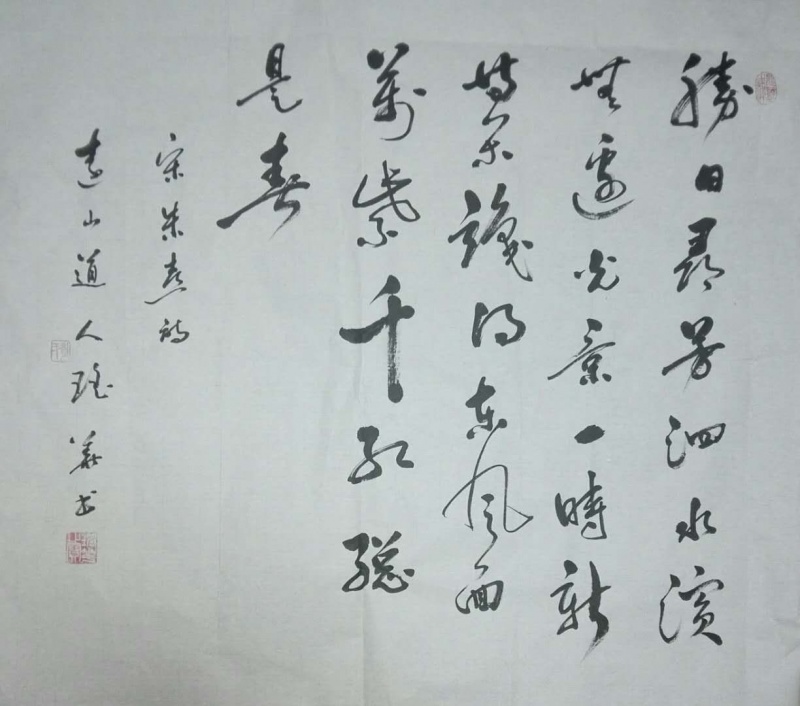 勝日尋芳泗水濱
無邊光景一時新
等閒識得東風面
萬紫千紅總
是春
宋朱熹詩
遠山道人瑤華书